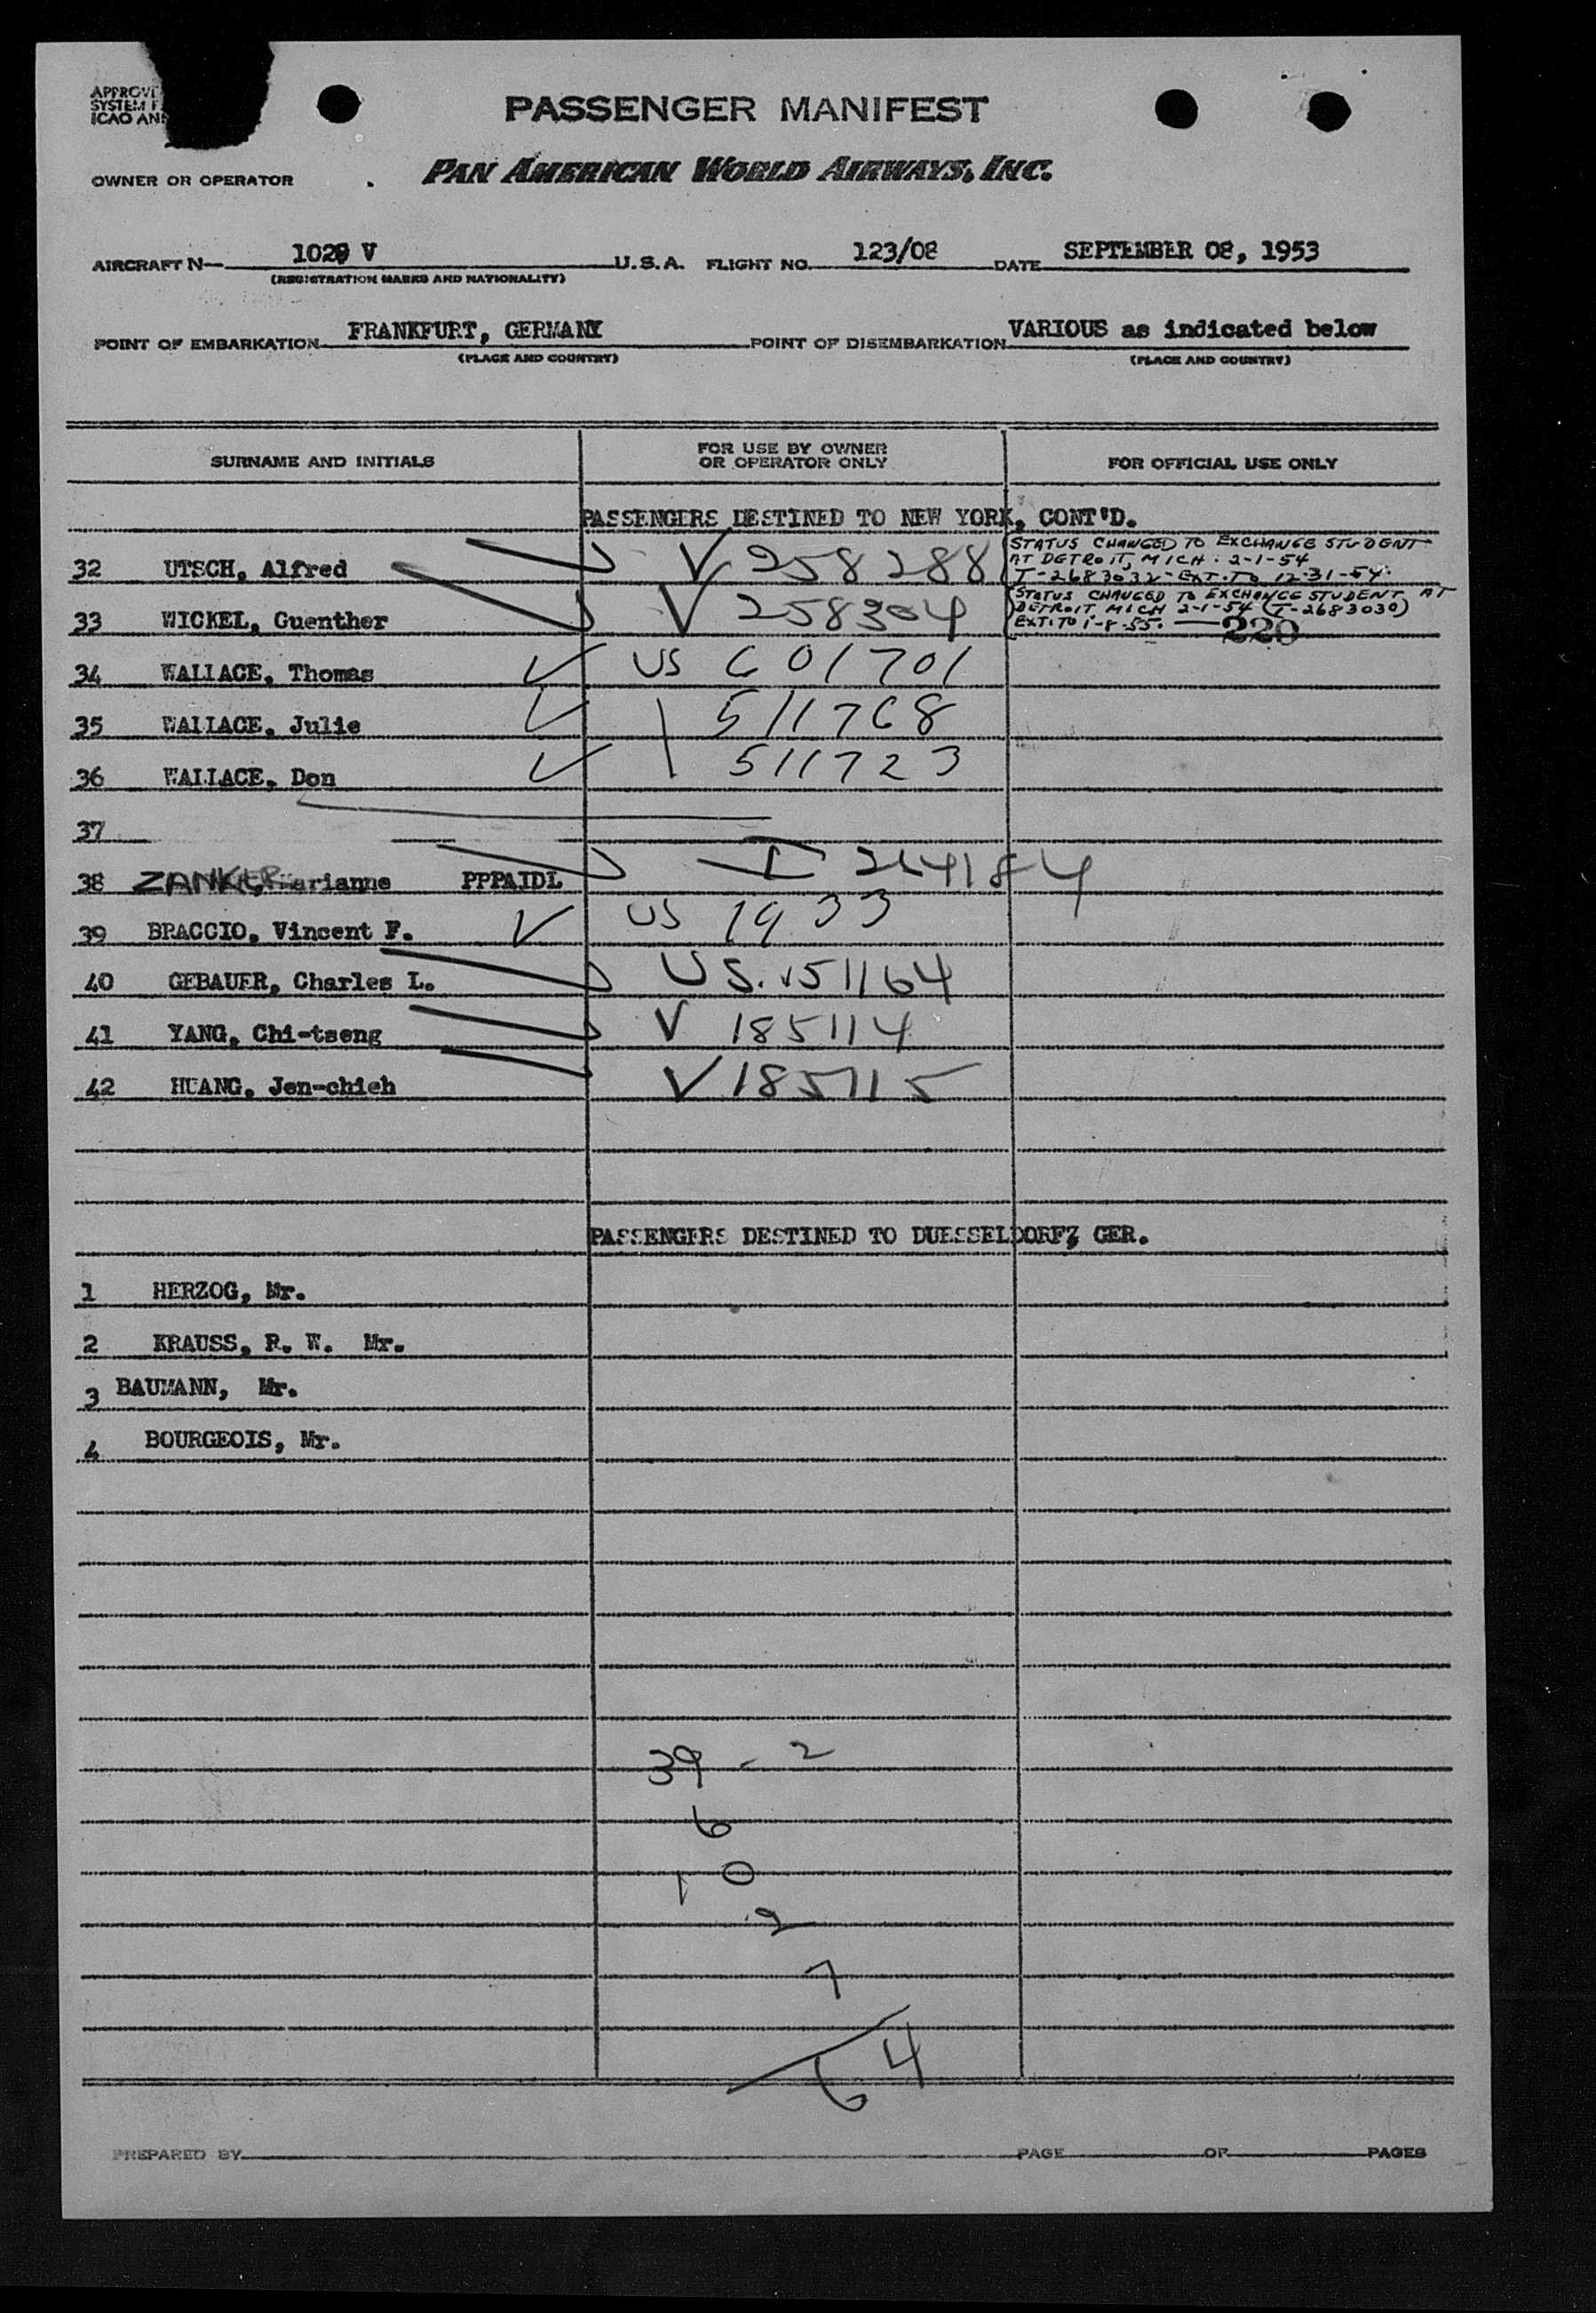 APPROVE
SYSTEM F
ICAO AN
PASSENGER MANIFEST
OWNER OR OPERATOR
PAN AMERICAN WORLD AIRWAYS, INC.
AIRCRAFT N— 1029 V U.S.A. FLIGHT NO. 123/08 DATE SEPTEMBER 08, 1953
(REGISTRATION MARKS AND NATIONALITY)
POINT OF EMBARKATION FRANKFURT, GERMANY POINT OF DISEMBARKATION VARIOUS as indicated below
(PLACE AND COUNTRY) (PLACE AND COUNTRY)
SURNAME AND INITIALS FOR USE BY OWNER OR OPERATOR ONLY FOR OFFICIAL USE ONLY
PASSENGERS DESTINED TO NEW YORK, CONT'D.
32 UTSCH, Alfred V 258288 STATUS CHANGED TO EXCHANGE STUDENT
AT DETROIT, MICH. 2-1-54
T-2683032- EXT. TO 12-31-54.
33 WICKEL, Guenther V 258304 STATUS CHANGED TO EXCHANGE STUDENT AT
DETROIT MICH 2-1-54 (T-2683030)
EXT. TO 1-8-55. — 220
34 WALLACE, Thomas US 601701
35 WALLACE, Julie 511768
36 WALLACE, Don 511723
37
38 ZANKER, Marianne PPPAIDL I 264184
39 BRACCIO, Vincent F. US 1933
40 GEBAUER, Charles L. US. 151164
41 YANG, Chi-tseng V 185114
42 HUANG, Jen-chieh V 185115
PASSENGERS DESTINED TO DUESSELDORF, GER.
1 HERZOG, Mr.
2 KRAUSS, R. W. Mr.
3 BAUMANN, Mr.
4 BOURGEOIS, Mr.
39 - 2
6
10
2
7
64
PREPARED BY PAGE OF PAGES